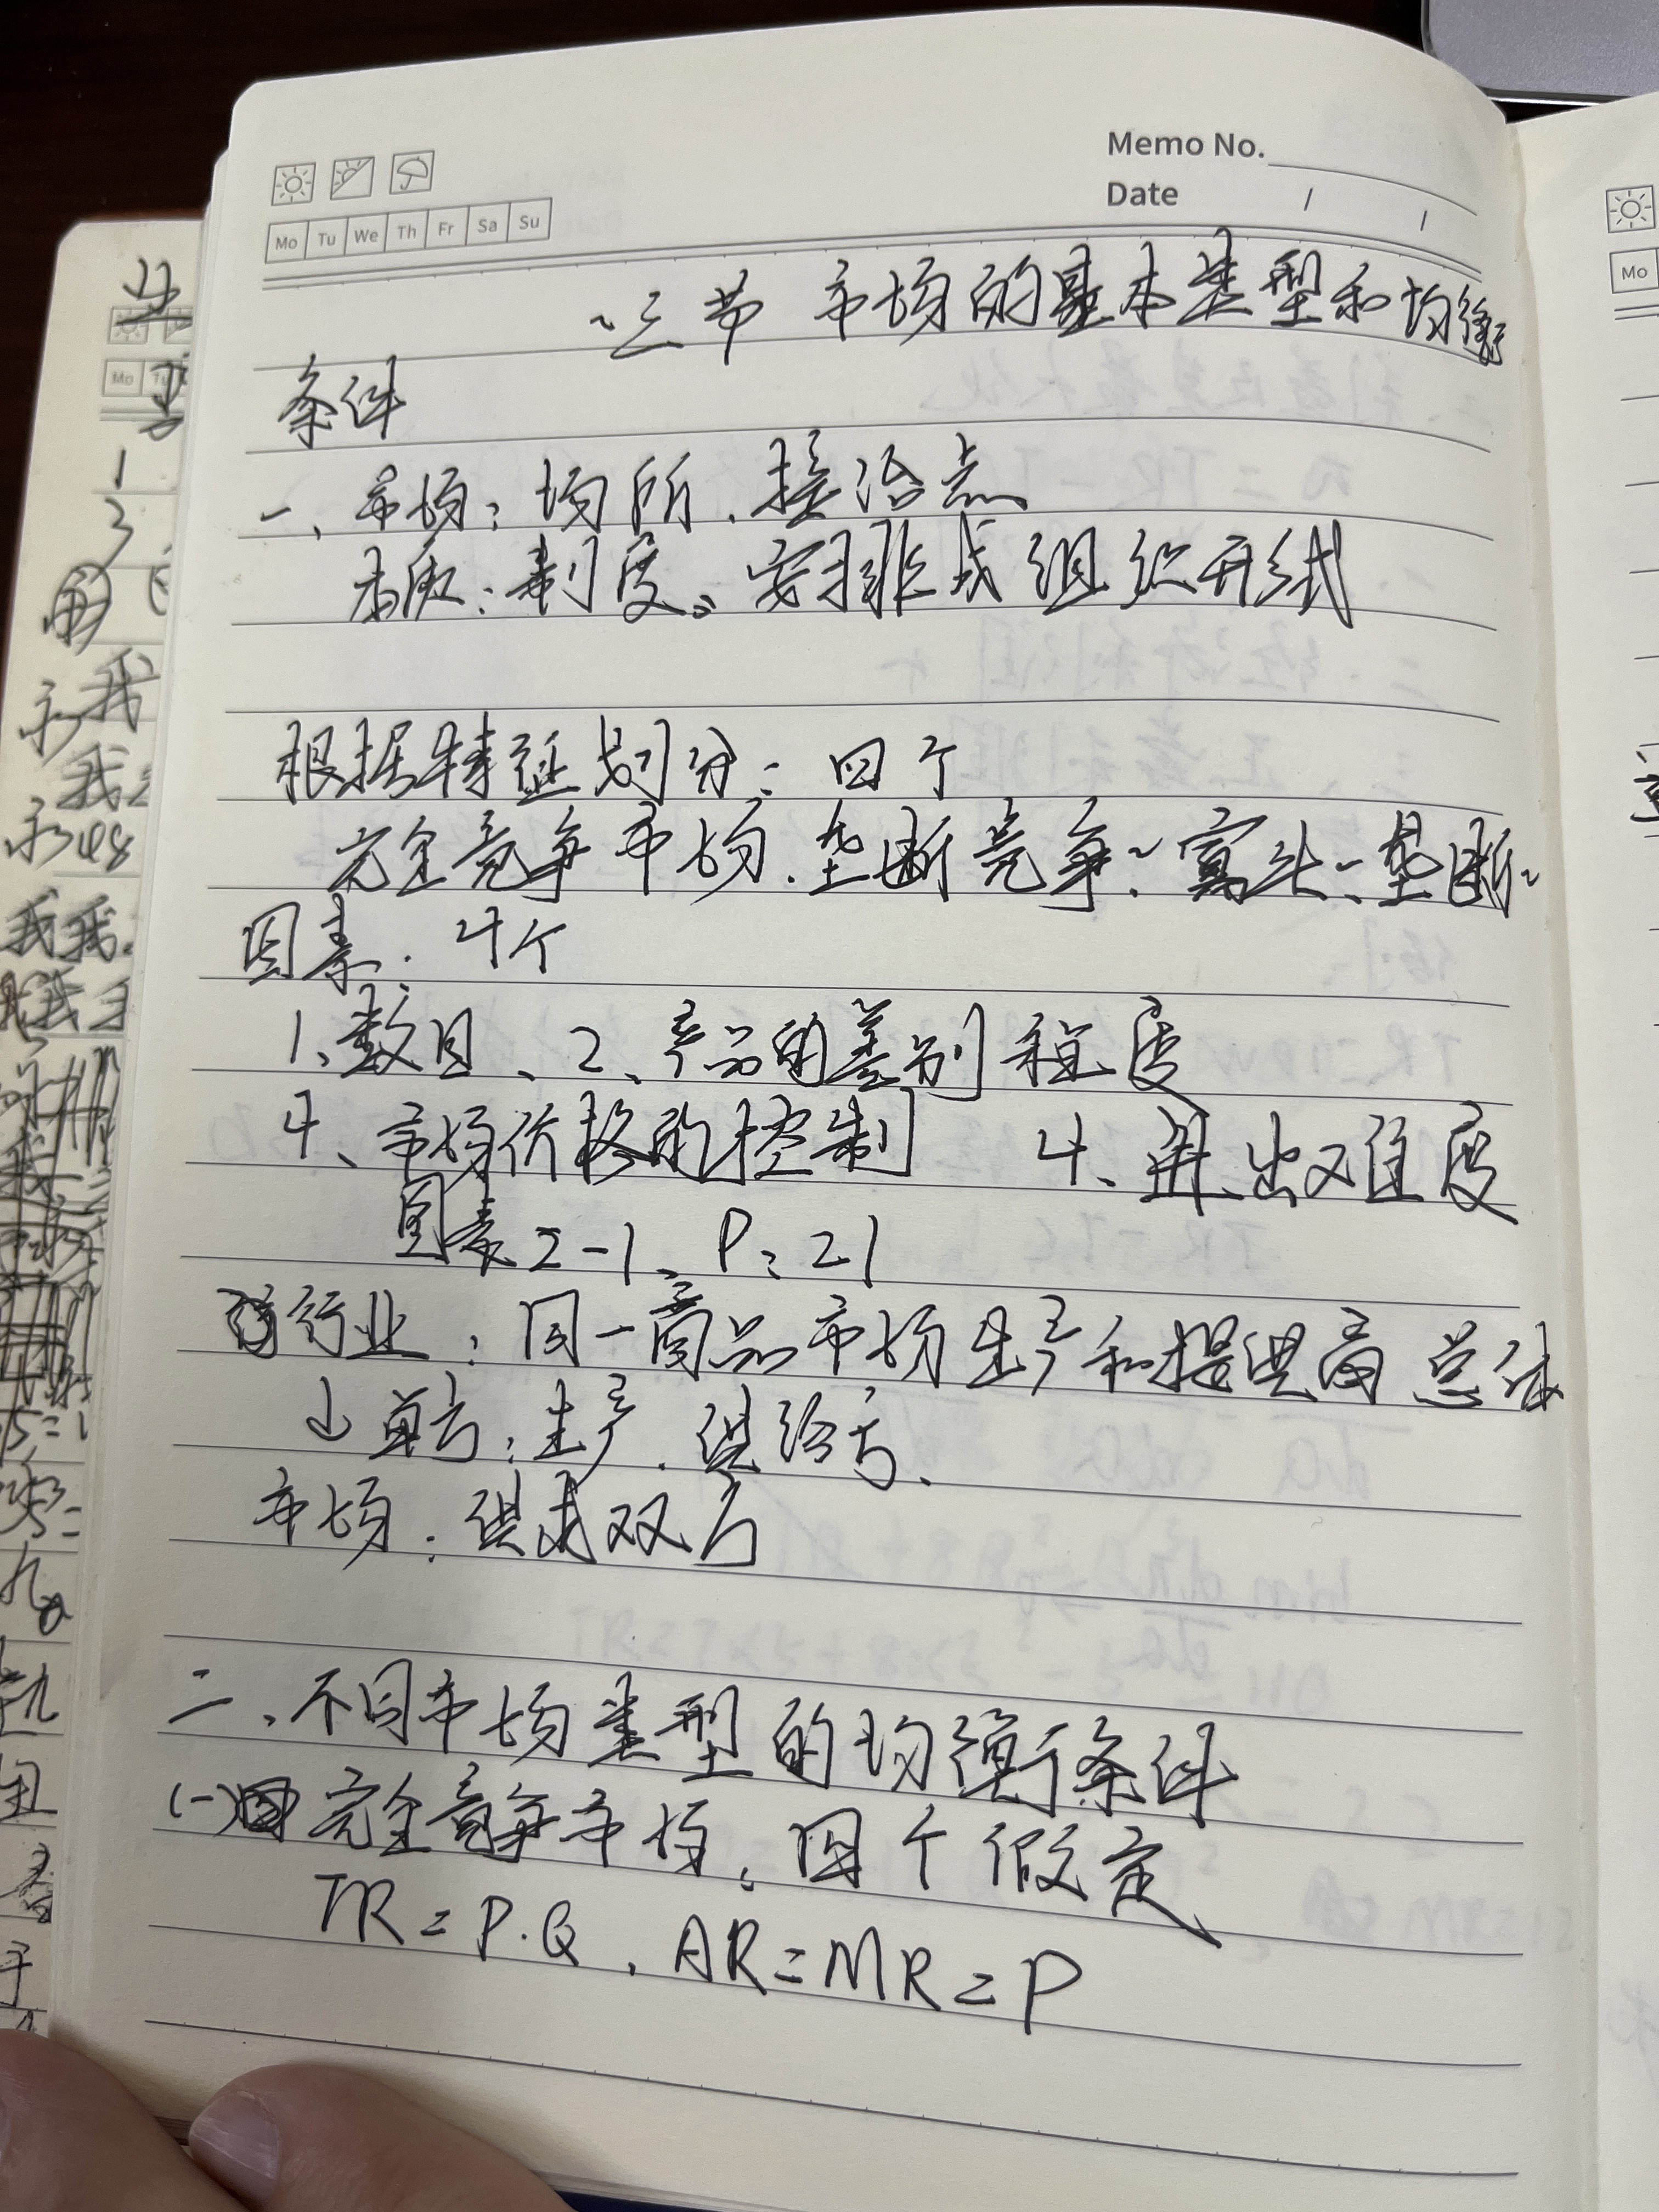 Memo No.
Date / /
Mo Tu We Th Fr Sa Su
三节 市场的基本类型和均衡
条件
一、市场：场所、接洽点
本质：制度、安排或组织形式
根据特征划分：四个
完全竞争市场、垄断竞争~、寡头~、垄断~
因素：4个
1、数目、2、产品的差别程度
4、市场价格的控制 4、进出难度
图表2-1、P:21
行业：同一商品市场生产和提供商总体
↓单方：生产、供给方、
市场：供求双方
二、不同市场类型的均衡条件
(一)完全竞争市场：四个假定
TR=P·Q、AR=MR=P
Mo